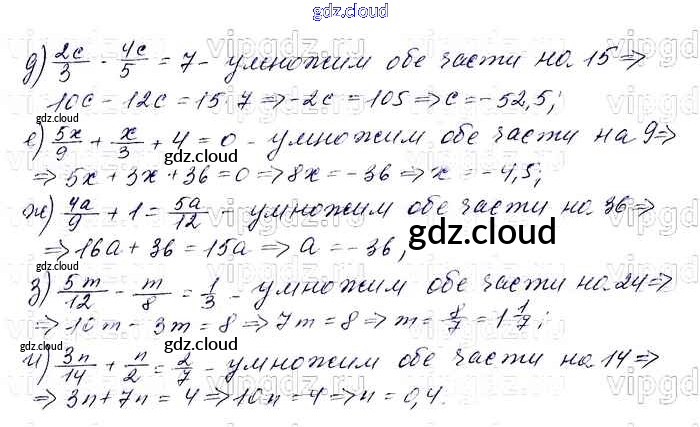 gdz.cloud
д) 2c/3 - 4c/5 = 7 - умножим обе части на 15 ⇒
10c - 12c = 15·7 ⇒ -2c = 105 ⇒ c = -52,5;
gdz.cloud
е) 5x/9 + x/3 + 4 = 0 - умножим обе части на 9 ⇒
gdz.cloud
⇒ 5x + 3x + 36 = 0 ⇒ 8x = -36 ⇒ x = -4,5;
ж) 4a/9 + 1 = 5a/12 - умножим обе части на 36 ⇒
gdz.cloud
⇒ 16a + 36 = 15a ⇒ a = -36;
gdz.cloud
з) 5m/12 - m/8 = 1/3 - умножим обе части на 24 ⇒
⇒ 10m - 3m = 8 ⇒ 7m = 8 ⇒ m = 8/7 = 1 1/7;
gdz.cloud
и) 3n/14 + n/2 = 2/7 - умножим обе части на 14 ⇒
⇒ 3n + 7n = 4 ⇒ 10n = 4 ⇒ n = 0,4.
gdz.cloud